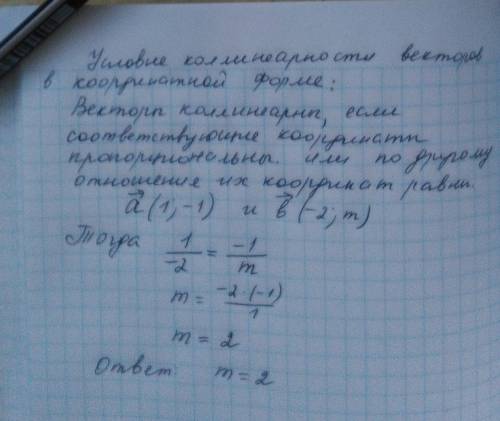 Условие коллинеарности векторов
в координатной форме:
Векторы коллинеарны, если
соответствующие координаты
пропорциональны. или по другому
отношения их координат равны.
a⃗ (1, -1) и b⃗ (-2; m)
Тогда 1/-2 = -1/m
m = -2·(-1)/1
m = 2
Ответ: m = 2